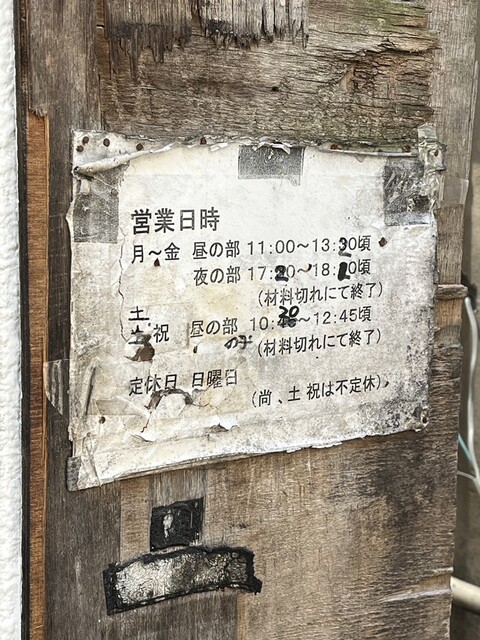 営業日時
月〜金 昼の部 11:00〜13:20頃
夜の部 17:20〜18:10頃
(材料切れにて終了)
土
祝 昼の部 10:30〜12:45頃
のみ (材料切れにて終了)
定休日 日曜日
(尚、土祝は不定休)